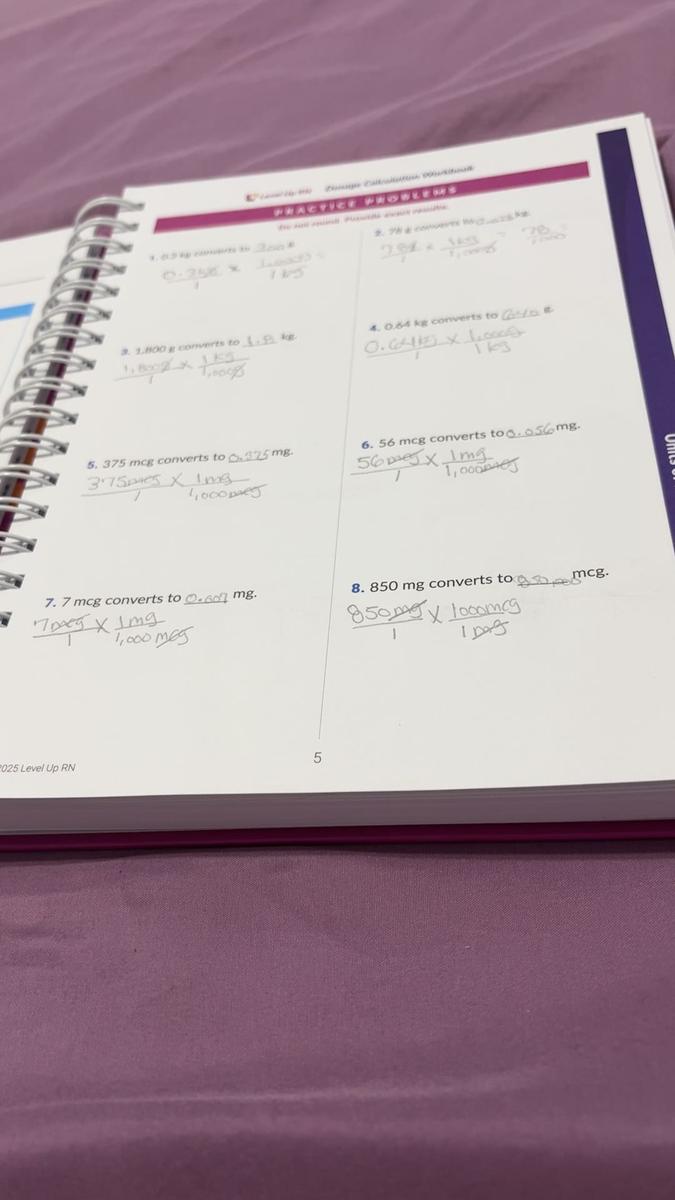 Level Up RN Dosage Calculation Workbook
PRACTICE PROBLEMS
Do not round. Provide exact results.
kg converts to g.
2. 78 g converts to 0.078 kg.
78g × 1kg = 78
1 1,000g 1,000
1,000g
1 1kg
3. 1,800 g converts to 1.8 kg.
1,800g × 1kg
1 1,000g
4. 0.64 kg converts to 640 g.
0.64kg × 1,000g
1 1kg
5. 375 mcg converts to 0.375 mg.
375mcg × 1mg
1 1,000mcg
6. 56 mcg converts to 0.056 mg.
56mcg × 1mg
1 1,000mcg
7. 7 mcg converts to 0.007 mg.
7mcg × 1mg
1 1,000mcg
8. 850 mg converts to 850,000 mcg.
850mg × 1000mcg
1 1mg
2025 Level Up RN
5